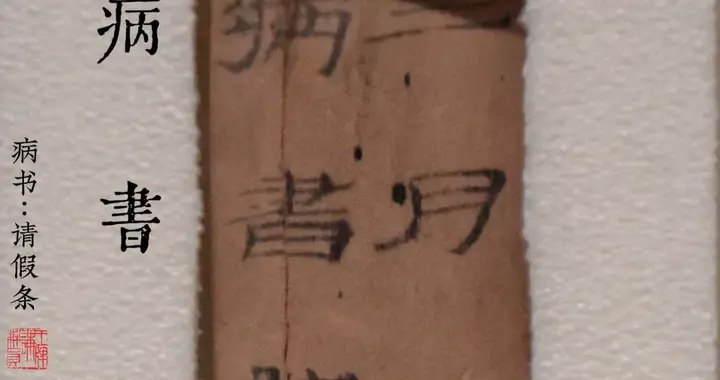 病書
病书：请假条
三月
病書